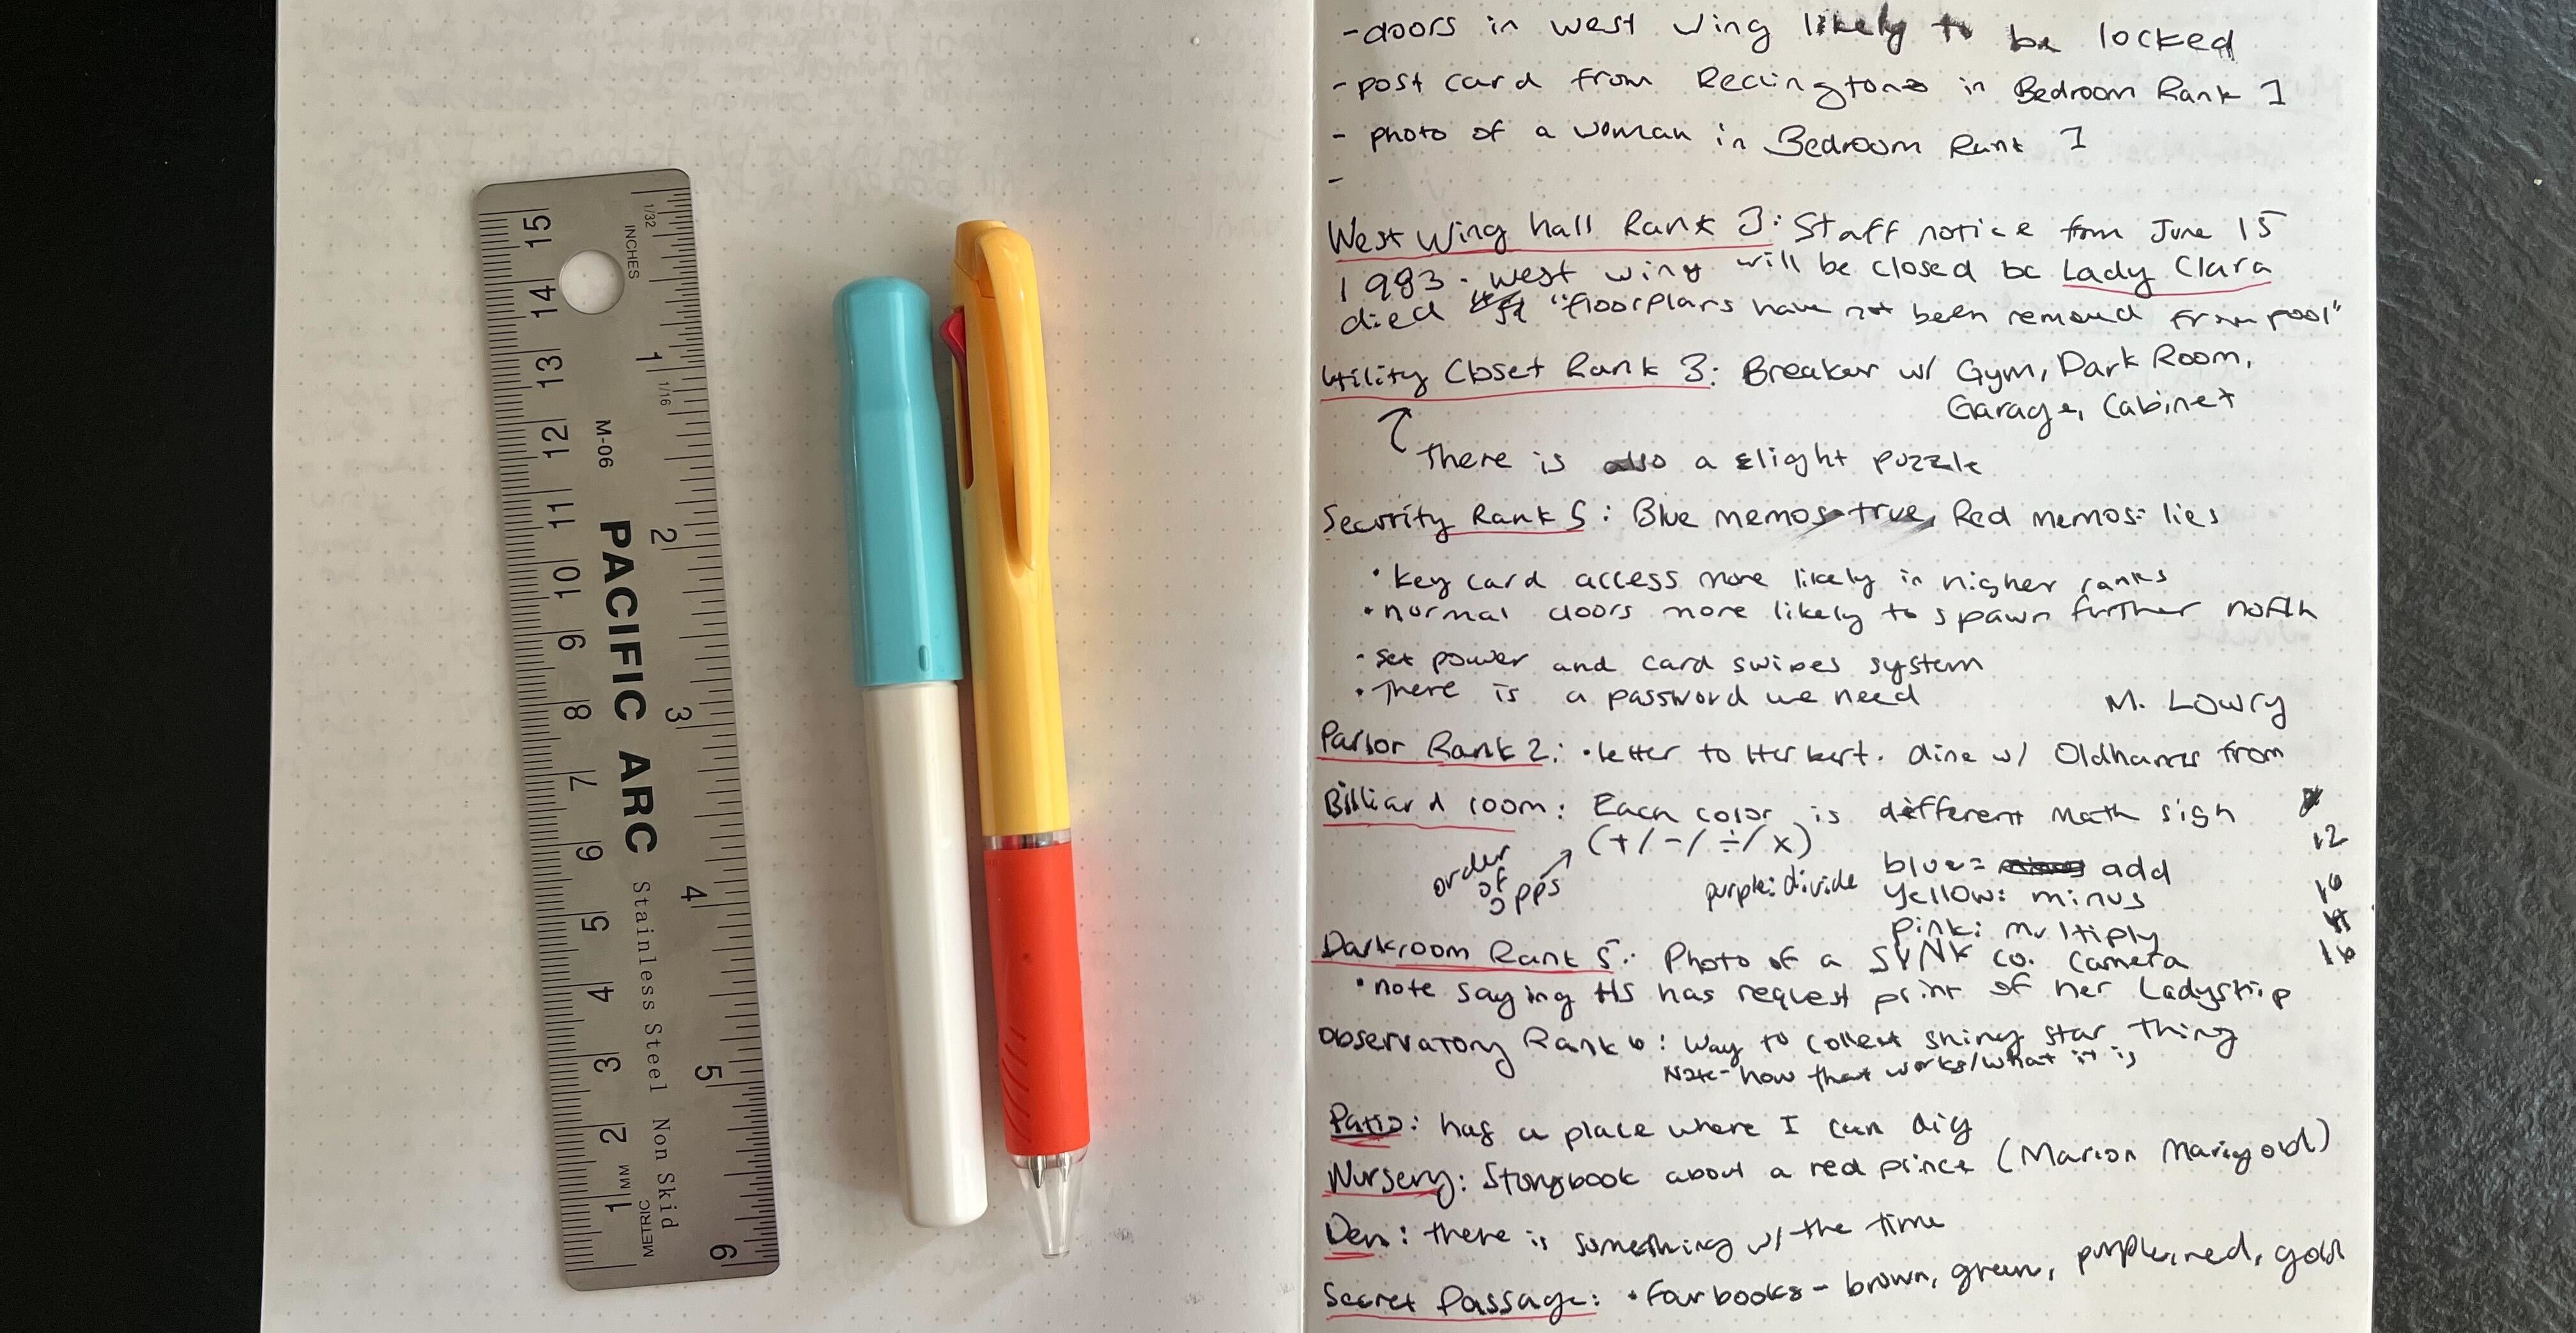 15
14
13
12
11
10
9
8
7
6
5
4
3
2
1
MM
METRIC
1/32
INCHES
1
1/16
2
3
4
5
6
M-06
PACIFIC ARC
Stainless Steel Non Skid
-doors in west wing likely to be locked
- post card from Reddingtons in Bedroom Rank 1
- photo of a woman in Bedroom Rank 1
-
West Wing hall Rank 3: Staff notice from June 15
1983. west wing will be closed bc Lady Clara
died "floorplans have not been removed from pool"
Utility Closet Rank 3: Breaker w/ Gym, Dark Room,
Garage, Cabinet
There is also a slight puzzle
Security Rank 5: Blue memos true, Red memos: lies
• key card access more likely in higher ranks
• normal doors more likely to spawn further north
- set power and card swipes system
• There is a password we need
M. Lowry
Parlor Rank 2: • letter to Herbert. dine w/ Oldhams from
Billiard room: Each color is different math sign
(+/-/÷/x)
order of opps
purple: divide
blue= add
yellow: minus
pink: multiply
12
16
Darkroom Rank 5: Photo of a SYNK co. camera
• note saying HS has request print of her Ladyship
Observatory Rank 6: Way to collect shiny star thing
Note- how that works/what it is
Patio: has a place where I can dig
Nursery: Storybook about a red prince (Marion Marigold)
Den: there is something w/ the time
Secret Passage: • four books - brown, green, purple, red, gold